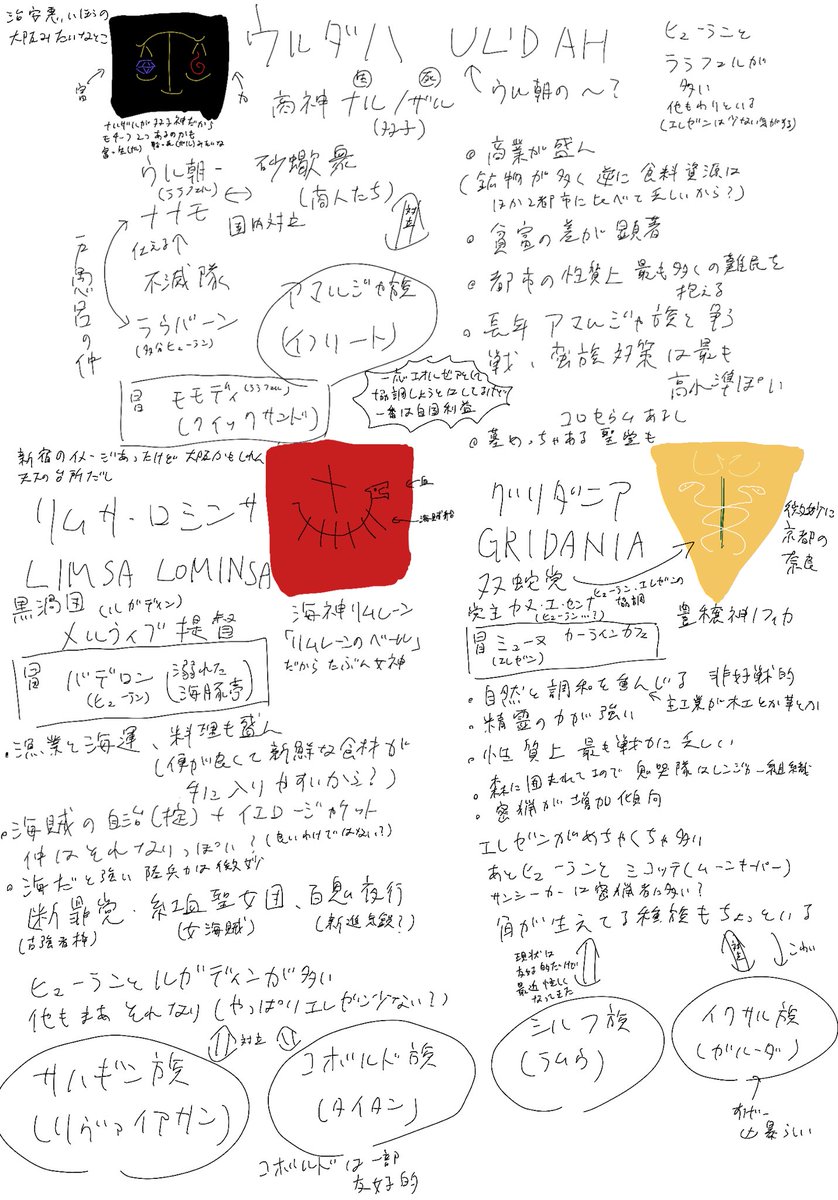 治安悪いほうの
大阪みたいなとこ
富
力
ナルザルが双子神だから
モチーフ2つあるのかも
ウルダハ ULDAH
商神 ナル/ザル
(双子)
ウル朝の〜?
ヒューランと
ララフェルが
多い
他もわりといる
(エレゼンは少ない気がする)
ウル朝 ↔ 砂蠍衆
(ララフェル)
(商人たち)
国内対立
ナナモ
仕える↑
不滅隊
ラウバーン
(多分ヒューラン)
対立
アマルジャ族
(イフリート)
冒 モモディ(ララフェル)
(クイックサンド)
一応エオルゼアとして
協調しようとはしてるけど
一番は自国利益
◎商業が盛ん
(鉱物が多く逆に食料資源は
ほか2都市に比べて乏しいから?)
◎貧富の差が顕著
◎都市の性質上 最も多くの難民を
抱える
◎長年 アマルジャ族と争う
戦、蛮族対策は最も
高水準ぽい
コロセウムあるし
◎墓めっちゃある 聖堂も
新宿のイメージあったけど大阪かもしれん
天下の台所だし
リムサ・ロミンサ
LIMSA LOMINSA
血
海賊船
黒渦団(ルガディン)
メルウィブ提督
冒 バデロン
(ヒューラン)
(溺れた
海豚亭)
海神リムレーン
「リムレーンのベール」
だからたぶん女神
・漁業と海運、料理も盛ん
(便が良くて新鮮な食材が
手に入りやすいから?)
◎海賊の自治(掟)+イエロージャケット
仲はそれなりっぽい?(良いわけではない?)
◎海だと強い 陸兵力は微妙
断罪党・紅血聖女団、百鬼夜行
(女海賊)
ヒューランとルガディンが多い
他もまあ それなり(やっぱりエレゼン少ない?)
対立
サハギン族
(リヴァイアサン)
コボルド族
(タイタン)
コボルドは一部
友好的
グリダニア
GRIDANIA
双蛇党
党主カヌ・エ・センナ
(ヒューラン…?)
ヒューラン・エレゼンの
協調
微妙に
京都の
奈良
豊穣神ノフィカ
冒 ミューヌ カーラインカフェ
(エレゼン)
・自然と調和を重んじる 非好戦的
主工業が木工とか革とか
・精霊の力が強い
・性質上 最も戦力に乏しい
・森に囲まれてるので 鬼哭隊はレンジャー組織
・密猟が増加傾向
エレゼンがめちゃくちゃ多い
あとヒューランと ミコッテ(ムーンキーパー)
サンシーカーは密猟者に多い?
角が生えてる種族もちょっといる
現状は
友好的だけど
最近怪しく
なってきた
対立
こわい
シルフ族
(ラムウ)
イクサル族
(ガルーダ)